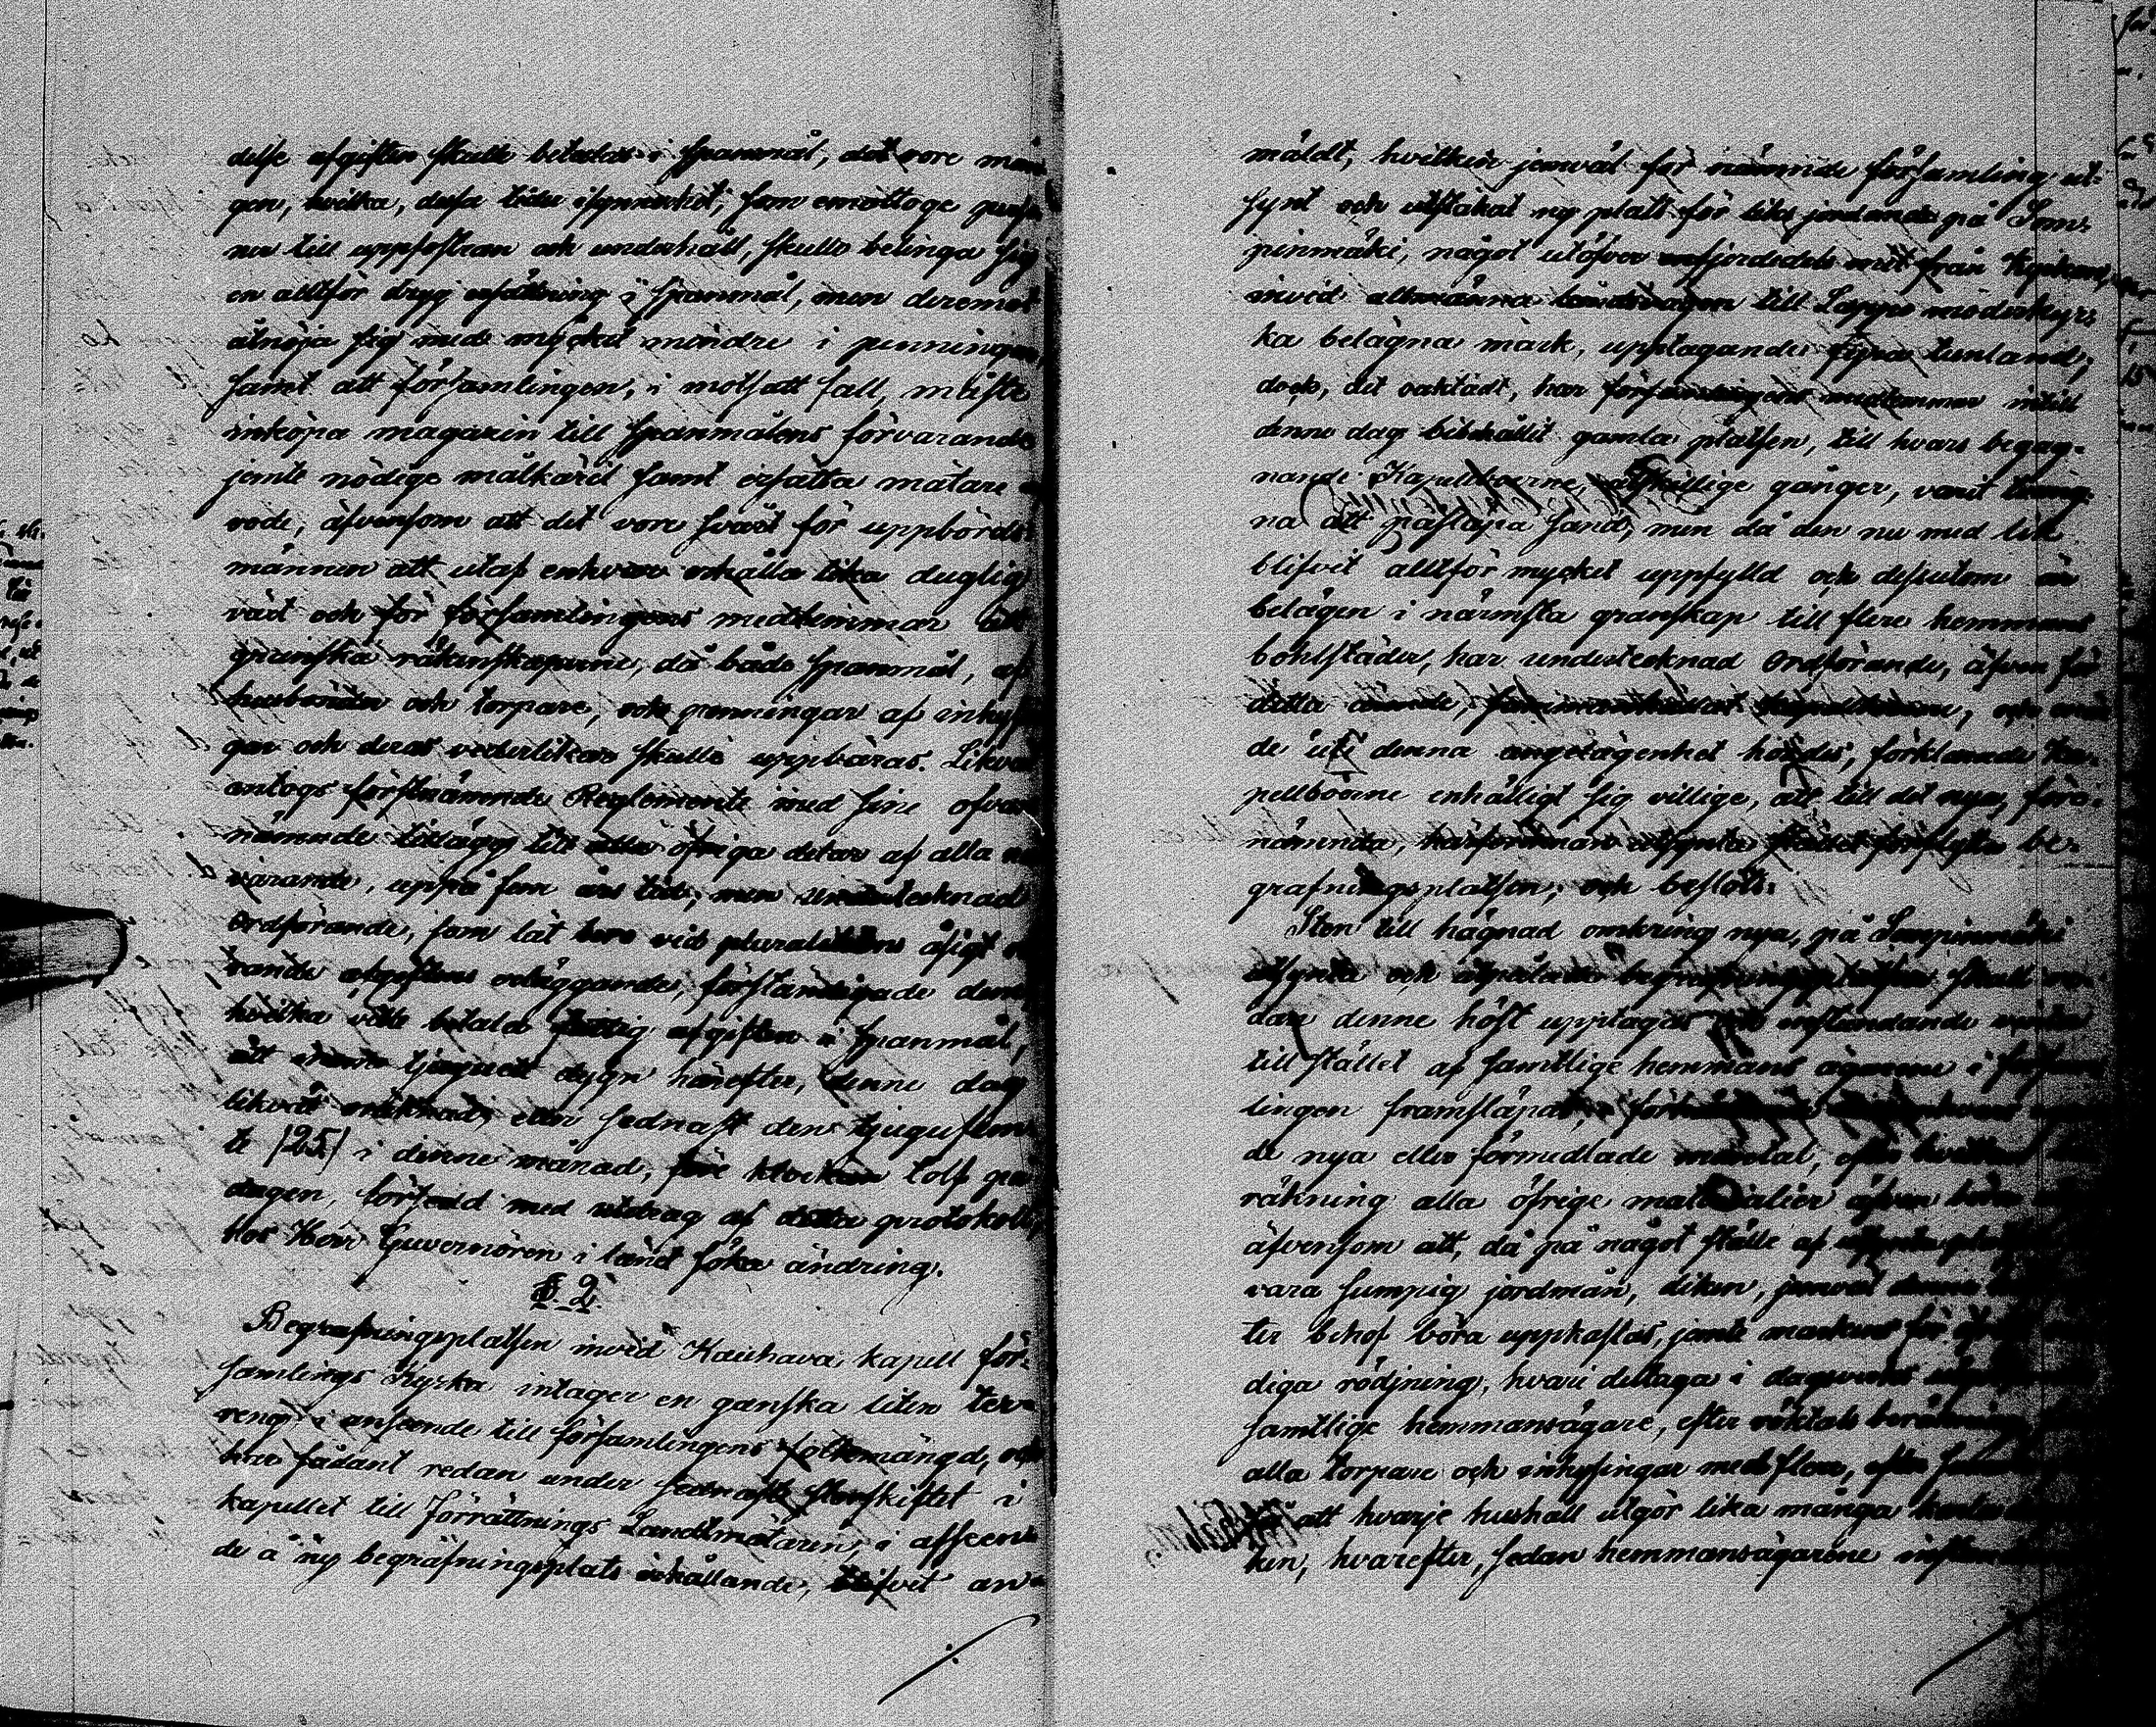 delse afgiften skulle betalas i spanmål, det vore mån
gen, hvilka, dessa tider isynnerhet, som emottoge
na till uppfostran och underhåll, skulle betinga sig
en alltför dryg ersättning i spanmål, men deremot
åtnöja sig med mycket mindre i penningar,
samt att församlingen, i motsatt fall, måste
inköpa magazin till spanmålens förvarande
jemte nödige målkäril samt ersätta mätare
vode, äfvensom att det vore svårt för uppbörds
männen att utaf enhvar erhålla lika duglig
väd och för församlingens medlemmar att
granska räkenskaperne, då både spanmål, af
husbönder och torpare, och penningar af inhysin
gar och deras vederlikar skulle uppbäras. Likväl
antogs förstnämnde Reglemente med sine ofvan
nämnde tillägg till alla öfriga delar af alla när
varande, uppå fem års tid; men undertecknad
Ordförande, som lät bero vid pluralitetens åsigt
rande afgiftens erläggande, förständigade dem
hvilka ville betala fattig afgiften i spanmål,
att inom tjuguett dygn härefter, denne dag
likväl oräknad, eller sednast den tjugufem
te /25/ i denne månad, före klockan tolf på
dagen, försedd med utdrag af detta protokoll,
hos Herr Guvernören i länet söka ändring.
§. 2.
Begrafningsplatsen invid Kauhava kapell för-
samlings Kyrka intager en ganska liten ter-
reng i anseende till församlingens folkmängd, och
har sådant redan under sednaste storskiftet i
kapellet till Förrättnings Landtmätaren, i afseen-
de å ny begrafningsplats erhållande, blifvit an-
mäldt, hvilken jemväl för nämnde församling ut-
synt och utstakat ny platt för liks jordande på Lam-
pinmäki, något utöfver enfjerdedels mil från Kyrkan,
invid allmänna landsvägen till Lappo moderkyr-
ka belägna mark, upptagande fyra tunland;
dock, det oaktadt, har församlingens medlemmar intill
denne dag bibehållit gamla platsen, till hvars begag-
nande Kapellboerne, åtskillige gånger, varit tvung-
na att påsläpa sand, men då den nu med lik
blifvit alltför mycket uppfylld och dessutom är
belägen i närmsta granskap till flere hemmans
bohlstäder, har undertecknad Ordförande, äfven för
detta ämnde, sammankallat kapellboerne, och
de uti denna angelägenhet hördes, förklarade Ka-
pellboerne enhälligt sig villige, att till det nya, före-
nämnda, härförinnan utsynta stället förflytta be-
grafningsplatsen; och beslöts:
Sten till hägnad omkring nya, på Lampinmäki
utsynta och begrafningsplatsen skall re-
dan denne höst upptagas och instundande
till stället af samtlige hemmans egarene i försam
lingen framsläpas,
de nya eller förmedlade mantal, efter hvilken
räkning alla öfrige materialier äfven böra
äfvensom att, då på något ställe af
vara sumpig jordmån, diken, jemväl
ter behof böra uppkastas, jemte markens för
diga rödjning, hvari deltaga i dagsverks
samtlige hemmansägare, efter röktals beräkning
alla torpare och inhysingar med flere, efter
att hvarje hushåll utgör lika många
ken, hvarefter, sedan hemmansägarene